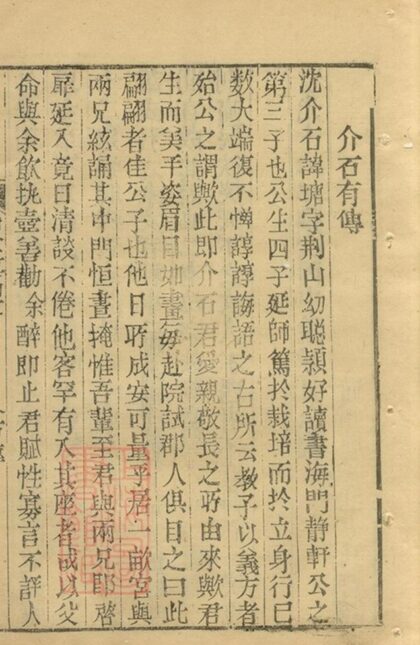 介石有傳
沈介石諱塘字荆山幼聰頴好讀書海門静軒公之
第三子也公生四子延師篤於栽培而於立身行已
數大端復不憚諄諄誨語之古所云教子以義方者
殆公之謂歟此即介石君愛親敬長之所由來歟君
生而美丰姿眉目如畫每赴院試郡人俱目之曰此
翩翩者佳公子也他日所成安可量乎居一畝宮與
兩兄絃誦其中門恒晝掩惟吾輩至君與兩兄即啓
扉延入竟日清談不倦他客罕有入其座者或以父
命與余飲挑壺善勸余醉即止君賦性寡言不評人